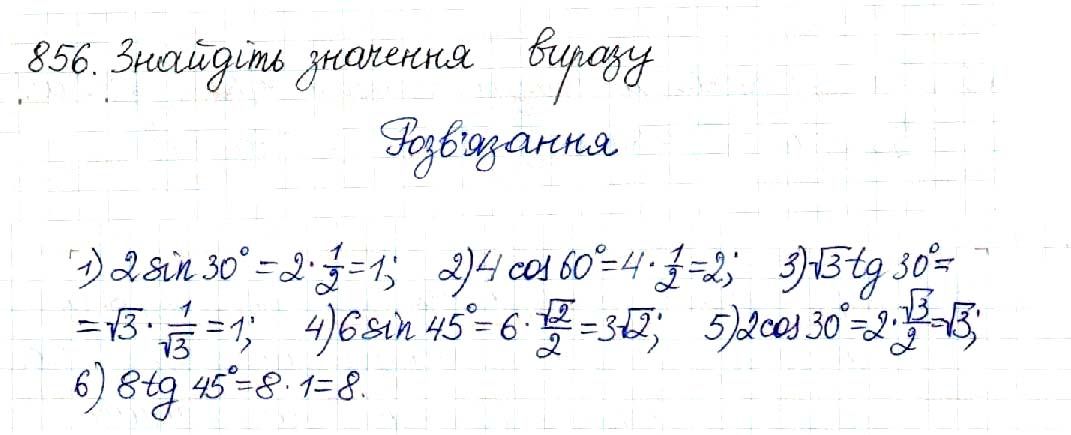 856. Знайдіть значення виразу
Розв'язання
1) 2 sin 30° = 2 · 1/2 = 1; 2) 4 cos 60° = 4 · 1/2 = 2; 3) √3 tg 30° =
= √3 · 1/√3 = 1; 4) 6 sin 45° = 6 · √2/2 = 3√2; 5) 2 cos 30° = 2 · √3/2 = √3;
6) 8 tg 45° = 8 · 1 = 8.